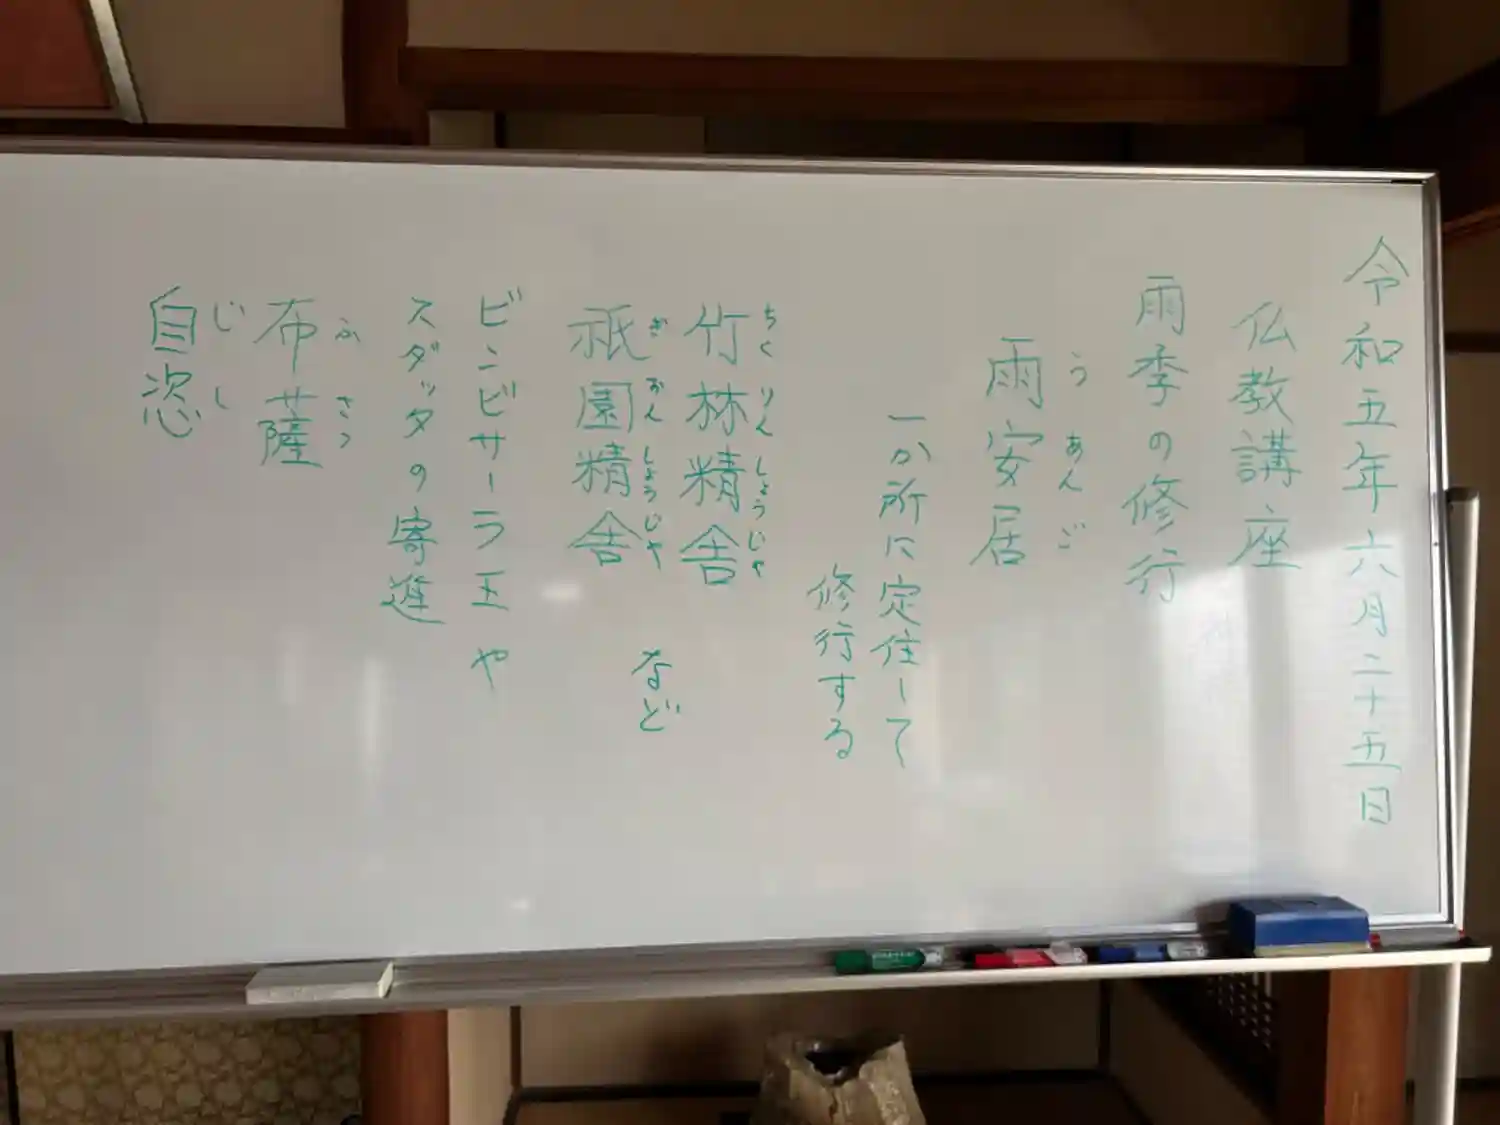 令和五年六月二十五日
仏教講座
雨季の修行
うあんご
雨安居
一か所に定住して
修行する
ちくりんしょうじゃ
竹林精舎
ぎおんしょうじゃ
祇園精舎
など
ビンビサーラ王や
スダッタの寄進
ふさつ
布薩
じし
自恣